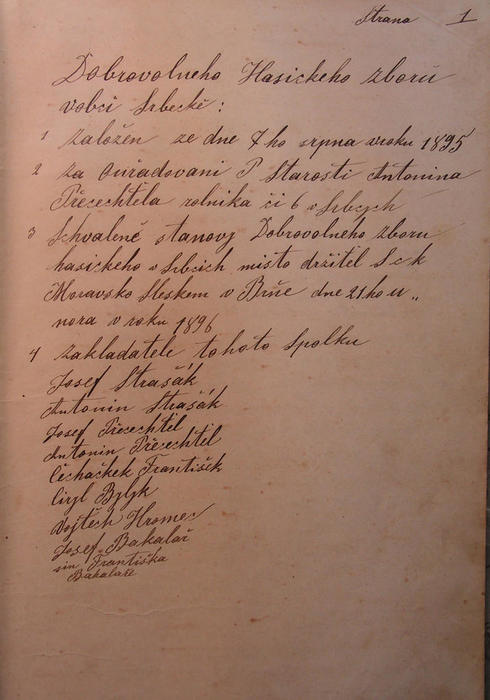 Strana 1
Dobrovolneho Hasickeho zboru
vobci Srbecké:
1 Založen ze dne 7ho srpna vroku 1895
2 Za ouřadovani P Starosti Antonina
Přecechtela rolnika či 6 v Srbcych
3 Schvalené stanovy Dobrovolneho zboru
hasickeho v Srbcich misto držitel S c k
Moravsko Sleskem v Brňe dne 21.ho u„
nora v roku 1896
4 Zakladatele tohoto Spolku
Josef Strašák
Antonin Strašák
Josef Přecechtěl
Antonin Přecechtěl
Čechačkek Františk
Ciryl Bylyk
Vojtěch Hromec
Josef Bakalař
sin Františka
Bakalaře